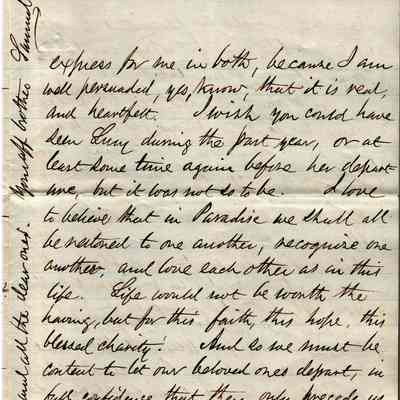 express for me in both, because I am
well persuaded, yes, know, that it is real,
and heartfelt. I wish you could have
seen Lucy during the past year, or at
least some time again before her depart-
ure, but it was not so to be. I love
to believe that in Paradise we shall all
be restored to one another, recognize one
another, and love each other as in this
life. Life would not be worth the
having, but for this faith, this hope, this
blessed charity! And so we must be
content to let our beloved ones depart, in
full confidence that they only precede us
and all the dear ones. Your aff brother Samuel